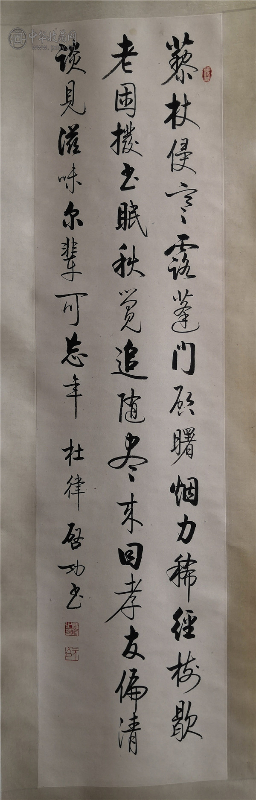 藜杖侵寒露蓬门启曙烟力稀經树歇
老困撥书眠秋觉追随尽来因孝友偏清
談見滋味尔輩可忘年 杜律 启功书